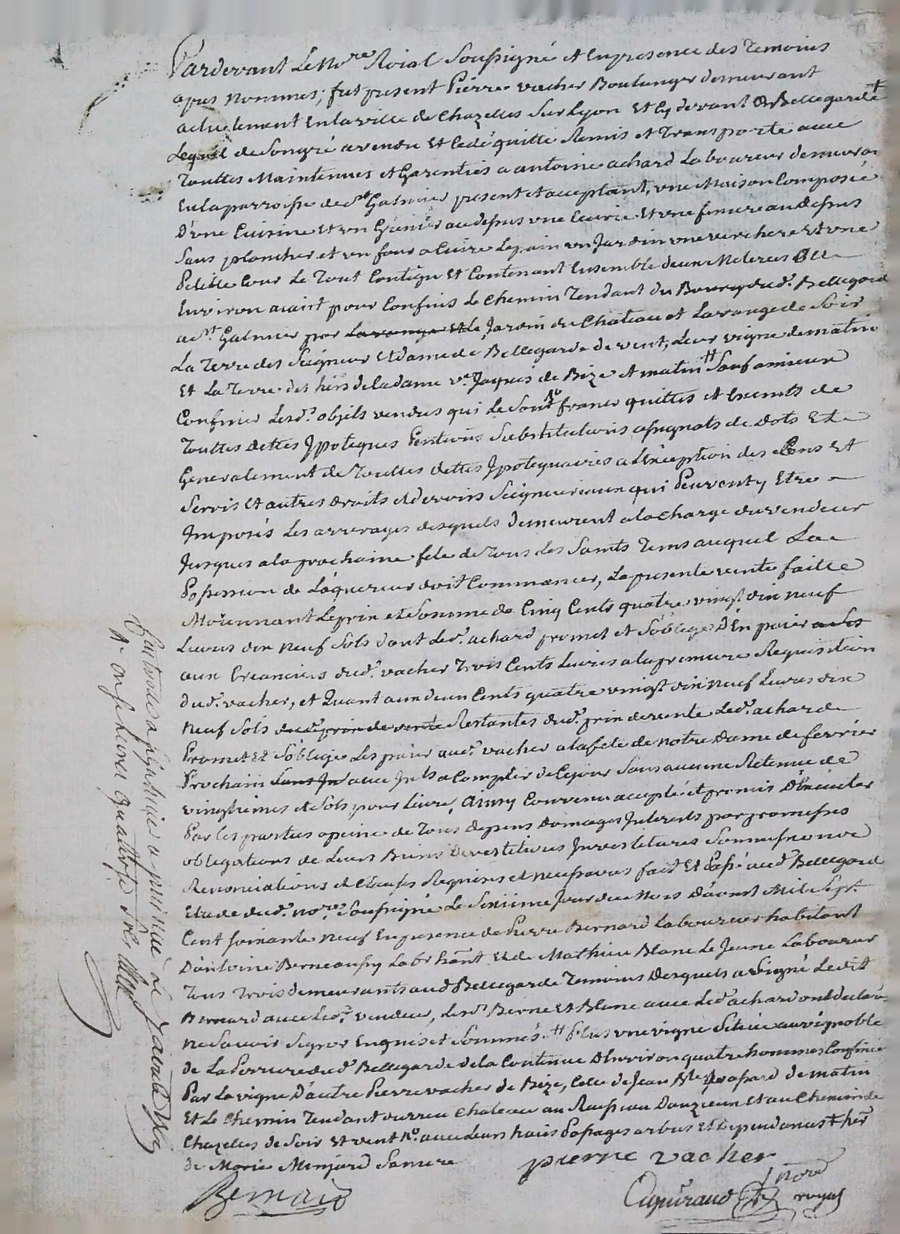 Pardevant Le No.re Roial Soussigné et Enpresence des Temoins
apres nommes, fut present Pierre vacher Boulanger demeurant
actuelement Enlaville de Chazelles Sur Lyon Et Cy devant a Bellegarde +
Lequel de Songré avendu Et Cedé quitté Remis et Transporté avec
Touttes Maintenues et Garenties a antoine achard Laboureur demeurant
En la parroisse de St Galmier present et acceptant, une Maison Composée
D'une Cuisine et un Grenier audessus une Ecurie Et une feniere audessus
Sans plancher et un four a Cuire Le pain un Jardin une verchere et une
Petitte Cour Le Tout Contigu Et Contenant Ensemble deux Meterees
Environ aiant pour Confins Le Chemin Tendant du Bourg dud. Bellegarde
a St Galmier par Le Jardin du Chateau et La vange de Soir
La Terre des Seigneur et dame de Bellegarde de vent, Leur vigne de matin
Et La Terre des hers de la dame ve Jaques de Bize et matin # Sauf amieux
Confiner Lesd. objets vendus qui Le Sont francs quittes et Exempts de
Touttes dettes Ypoteques Substitutions assignats de dots Et
Generalement de Touttes dettes Ypotequaires a L'exception des Cens Et
Servis Et autres Droits et devoirs Seigneuriaux qui Peuvent y Etre
Imposés Les arrerages desquels demeurent ala Charge du vendeur
Jusques ala prochaine fete de Tous Les Saints Tems auquel La
Possession de L'aquereur doit Commancer, La presente vente faitte
Moiennant Le prix et Somme de Cinq Cents quatre vingt dix neuf
Livres dix neuf Sols dont Led. achard promet et S'oblige D'En paier
aux Creanciers dud. vacher Trois Cents Livres ala premiere Requisition
Dud. vacher, et Quant aux deux Cents quatre vingt dix neuf Livres dix
Neuf Sols Restantes dud. prix de vente Led. achard
Promet Et S'oblige Les paier aud. vacher ala fete de notre Dame de fevrier
Prochain avec Int. a Compter de Ce jour Sans aucune Retenue de
vingtiemes et Sols pour Livre, Ainsy Convenu accepté et promis D'Executer
Par Les parties apeine de Tous depens Domages Interets par promesses
obligations de Leurs Biens Devestitures Investitures
Renonciations et Clauses Requises et fait Et Passé aud. Bellegarde
Etude dud. No.re Soussigné Le Jour du Mois D'avout Mil Sept
Cent Soixante Neuf En presence de Pierre Bernard Laboureur habitant
D'antoine Berne aussy Lab. hant Et de Mathieu Blanc Le Jeune Laboureur
Tous Trois demeurants aud. Bellegarde Temoins Desquels a Signé Ledit
Bernard avec Led. vendeur, Lesd. Berne Et Blanc avec Led. achard ont declaré
ne Savoir Signer Enquis et Sommés # Plus une vigne Située au vignoble
de La dud. Bellegarde de la Contenue D'Environ quatre hommes Confinée
Par La vigne D'autre Pierre vacher de Bize, Celle de Jean Bte de matin
Et Le Chemin Tendant du Chateau au Ruisseau Et au Chemin de
Chazelles de Soir Et vent avec Leurs hais Passages arbres et Dependances + her
de Marie Sa mere
pierre vacher
Bernard
no.re
royal